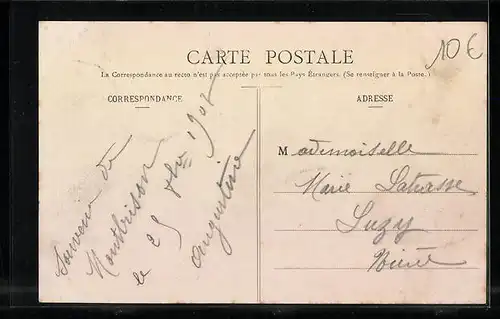 CARTE POSTALE
10€
La Correspondance au recto n'est pas acceptée par tous les Pays Étrangers. (Se renseigner à la Poste.)
CORRESPONDANCE
Souvenir de
Montbrison
le 25 1908
Augustine
ADRESSE
Mademoiselle
Marie
Luzy
Nièvre